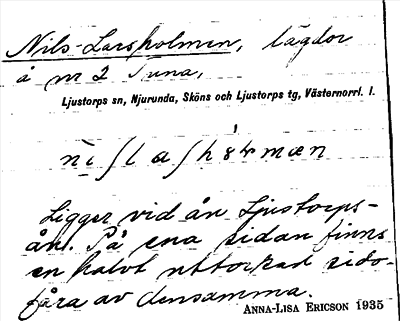 Nils-Larsholmen, lägdor
å nr 2 Tuna,
Ljustorps sn, Njurunda, Sköns och Ljustorps tg, Västernorrl. l.
Ligger vid ån Ljustorps-
ån. På ena sidan finns
en halvt uttorkad sido-
fåra av densamma.
ANNA-LISA ERICSON 1935